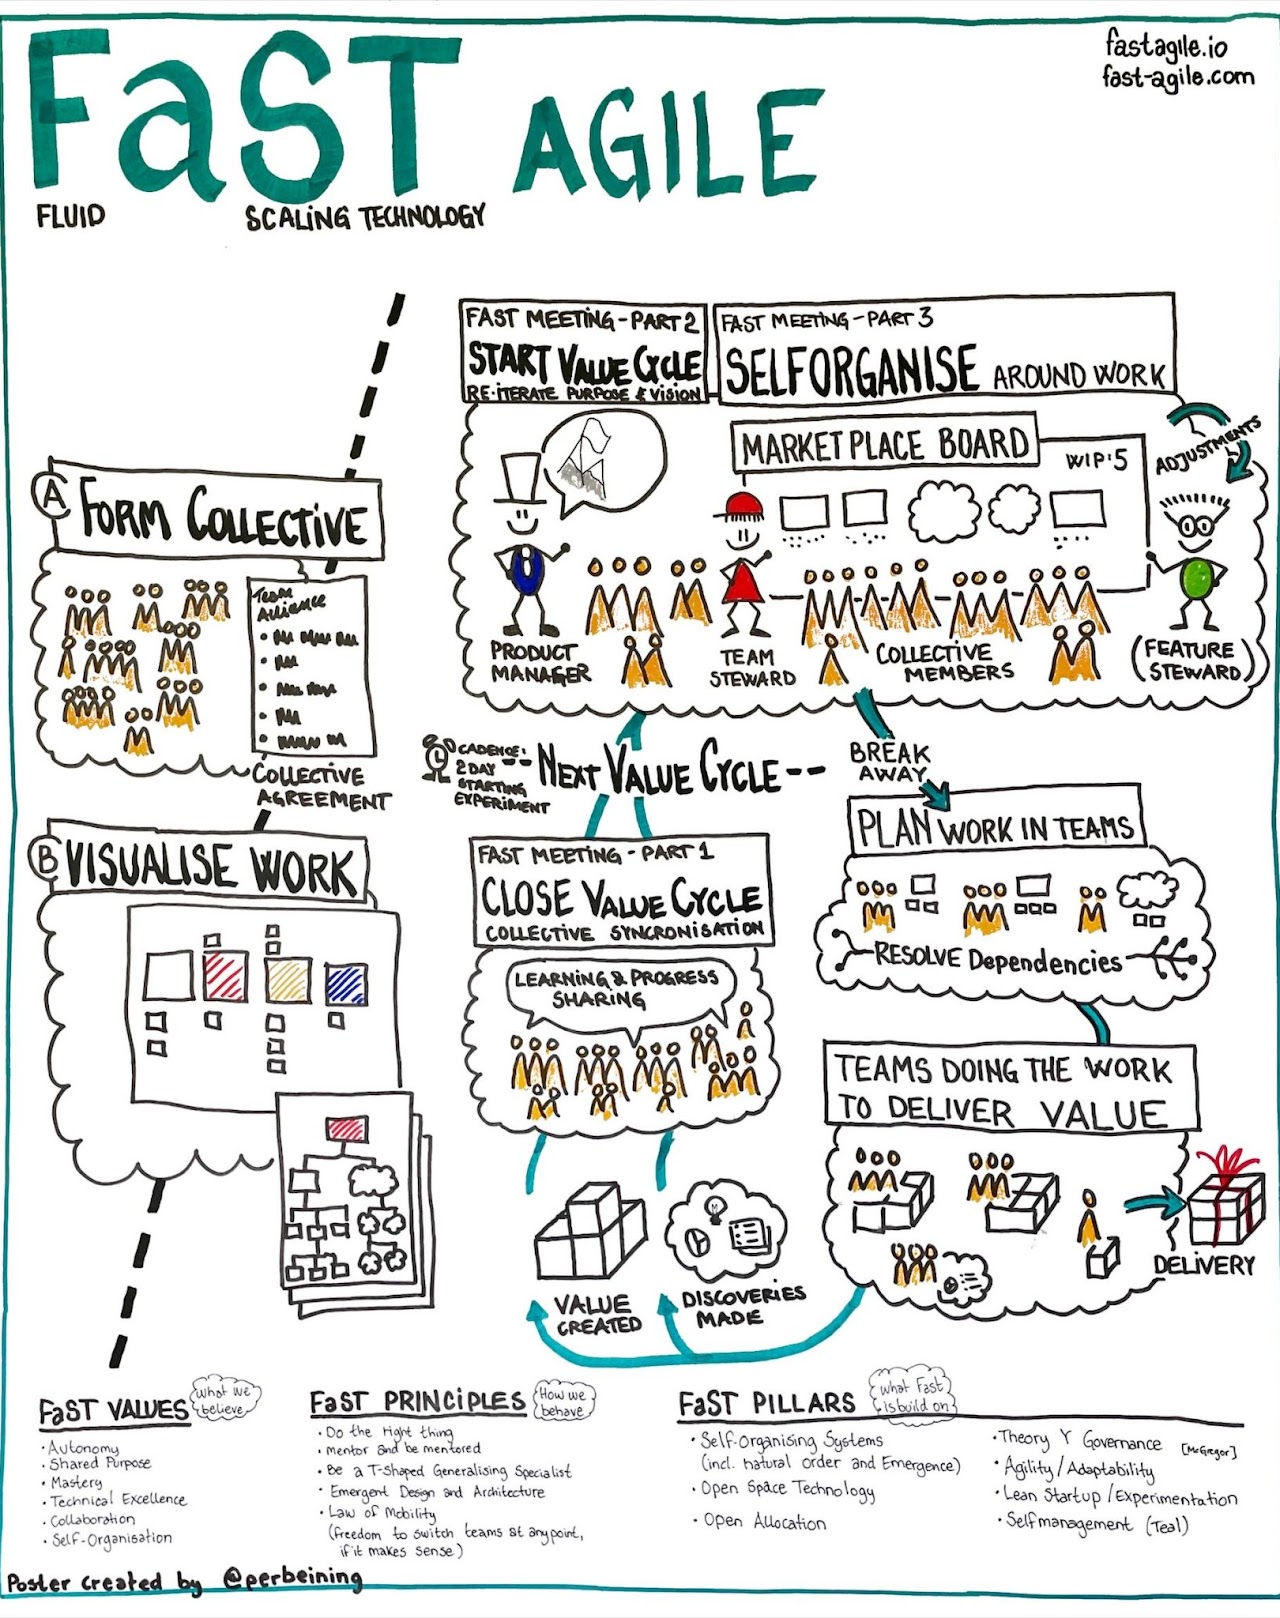 FaST AGILE
FLUID
SCALING TECHNOLOGY
fastagile.io
fast-agile.com
FAST MEETING - PART 2
START VALUE CYCLE
RE-ITERATE PURPOSE & VISION
FAST MEETING - PART 3
SELFORGANISE AROUND WORK
MARKETPLACE BOARD
WIP:5
ADJUSTMENTS
PRODUCT
MANAGER
TEAM
STEWARD
COLLECTIVE
MEMBERS
(FEATURE
STEWARD)
A FORM COLLECTIVE
Team
Alliance
COLLECTIVE
AGREEMENT
B VISUALISE WORK
CADENCE:
2 DAY
STARTING
EXPERIMENT
NEXT VALUE CYCLE
BREAK
AWAY
PLAN WORK IN TEAMS
RESOLVE Dependencies
FAST MEETING - PART 1
CLOSE VALUE CYCLE
COLLECTIVE SYNCRONISATION
LEARNING & PROGRESS
SHARING
TEAMS DOING THE WORK
TO DELIVER VALUE
DELIVERY
VALUE
CREATED
DISCOVERIES
MADE
FaST VALUES
What we
believe
• Autonomy
• Shared Purpose
• Mastery
• Technical Excellence
• Collaboration
• Self-Organisation
FaST PRINCIPLES
How we
behave
• Do the right thing
• Mentor and be mentored
• Be a T-Shaped Generalising Specialist
• Emergent Design and Architecture
• Law of Mobility
(freedom to switch teams at any point,
if it makes sense)
FaST PILLARS
what Fast
is build on
• Self-Organising Systems
(incl. natural order and Emergence)
• Open Space Technology
• Open Allocation
• Theory Y Governance [McGregor]
• Agility/Adaptability
• Lean Startup/Experimentation
• Selfmanagement (Teal)
Poster created by @perbeining